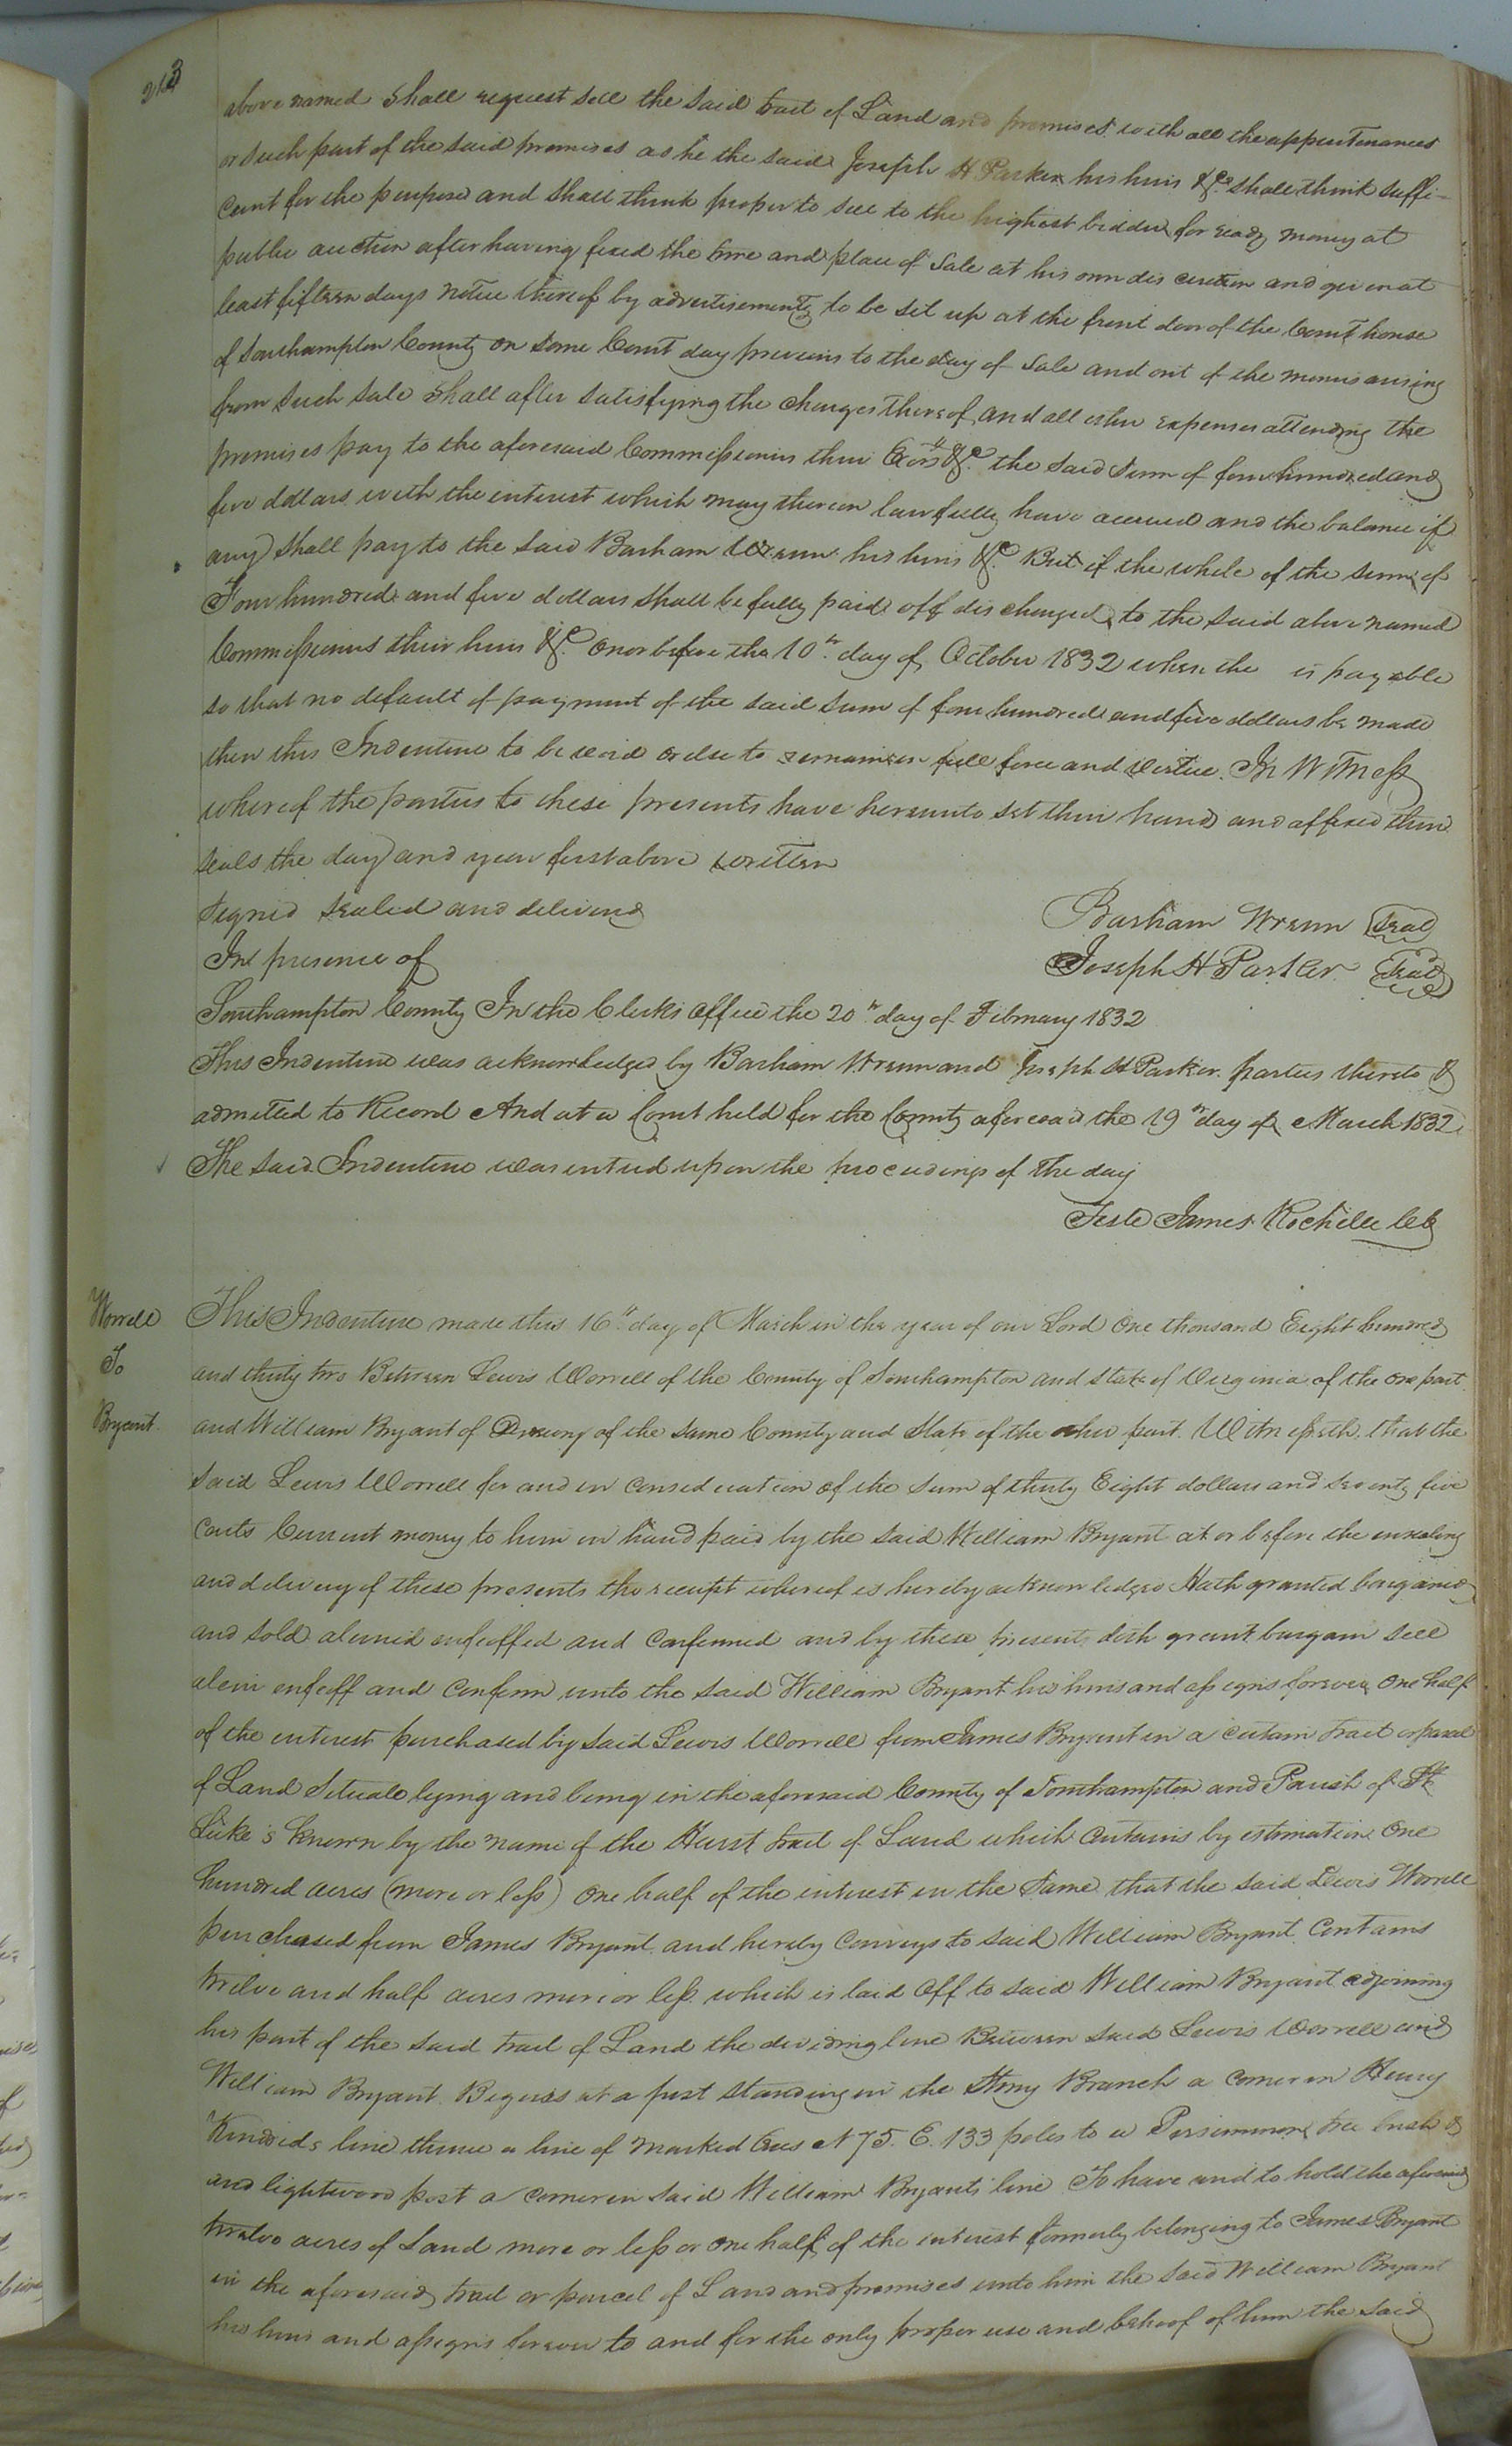 213
above named shall request sell the said tract of Land and premises with all the appurtenances
or such part of the said premises as he the said Joseph H Parker his heirs &c shall think suffi-
cient for the purpose and shall think proper to sell to the highest bidder for ready money at
public auction after having fixed the time and place of Sale at his own discretion and given at
least fifteen days notice thereof by advertisements to be set up at the front door of the Court house
of Southampton County on some Court day previous to the day of Sale and out of the monies arising
from such sale shall after satisfying the charges thereof and all other expenses attending the
premises pay to the aforesaid Commissioners their Exors &c. the said Sum of four hundred and
five dollars with the interest which may thereon lawfully have accrued and the balance if
any shall pay to the said Barham Wrenn his heirs &c. But if the whole of the sum of
Four hundred and five dollars shall be fully paid off discharged to the said above named
Commissioners their heirs &c. on or before the 10th day of October 1832 when the is payable
so that no default of payment of the said sum of four hundred and five dollars be made
then this Indenture to be void or else to remain in full force and virtue. In Witness
whereof the parties to these presents have hereunto set their hands and affixed their
seals the day and year first above written
Signed sealed and delivered
In presence of
Barham Wrenn Seal
Joseph H Parker Seal
Southampton County In the Clerks Office the 20th day of February 1832
This Indenture was acknowledged by Barham Wrenn and Joseph H Parker parties thereto &
admitted to Record And at a Court held for the County aforesaid the 19th day of March 1832
The said Indenture was entered upon the proceedings of the day
Teste James Rochelle Clk
Worrell
To
Bryant
This Indenture made this 16th day of March in the year of our Lord One thousand Eight hundred
and thirty two Between Lewis Worrell of the County of Southampton and State of Virginia of the one part
and William Bryant of Drewry of the same County and State of the other part. Witnesseth that the
said Lewis Worrell for and in consideration of the sum of thirty Eight dollars and seventy five
cents Current money to him in hand paid by the said William Bryant at or before the ensealing
and delivery of these presents the receipt whereof is hereby acknowledged Hath granted bargained
and sold aliened enfeoffed and confirmed and by these presents doth grant bargain sell
alein enfeoff and confirm unto the said William Bryant his heirs and assigns forever One half
of the interest purchased by said Lewis Worrell from James Bryant in a certain tract or parcel
of Land Situate lying and being in the aforesaid County of Southampton and Parish of St
Luke's known by the name of the Hurst tract of Land which contains by estimation One
hundred acres (more or less) One half of the interest in the Same that the said Lewis Worrell
purchased from James Bryant and hereby conveys to said William Bryant Contains
twelve and half acres more or less which is laid off to said William Bryant adjoining
his part of the said tract of Land the dividing line Between said Lewis Worrell and
William Bryant Begins at a post standing in the Stony Branch a corner in Henry
Kindreds line thence a line of marked trees N 75. E. 133 poles to a Persimmon tree bush &
and lightwood post a corner in said William Bryants line To have and to hold the aforesaid
twelve acres of Land more or less or one half of the interest formerly belonging to James Bryant
in the aforesaid tract or parcel of Land and premises unto him the said William Bryant
his heirs and assigns forever to and for the only proper use and behoof of him the said